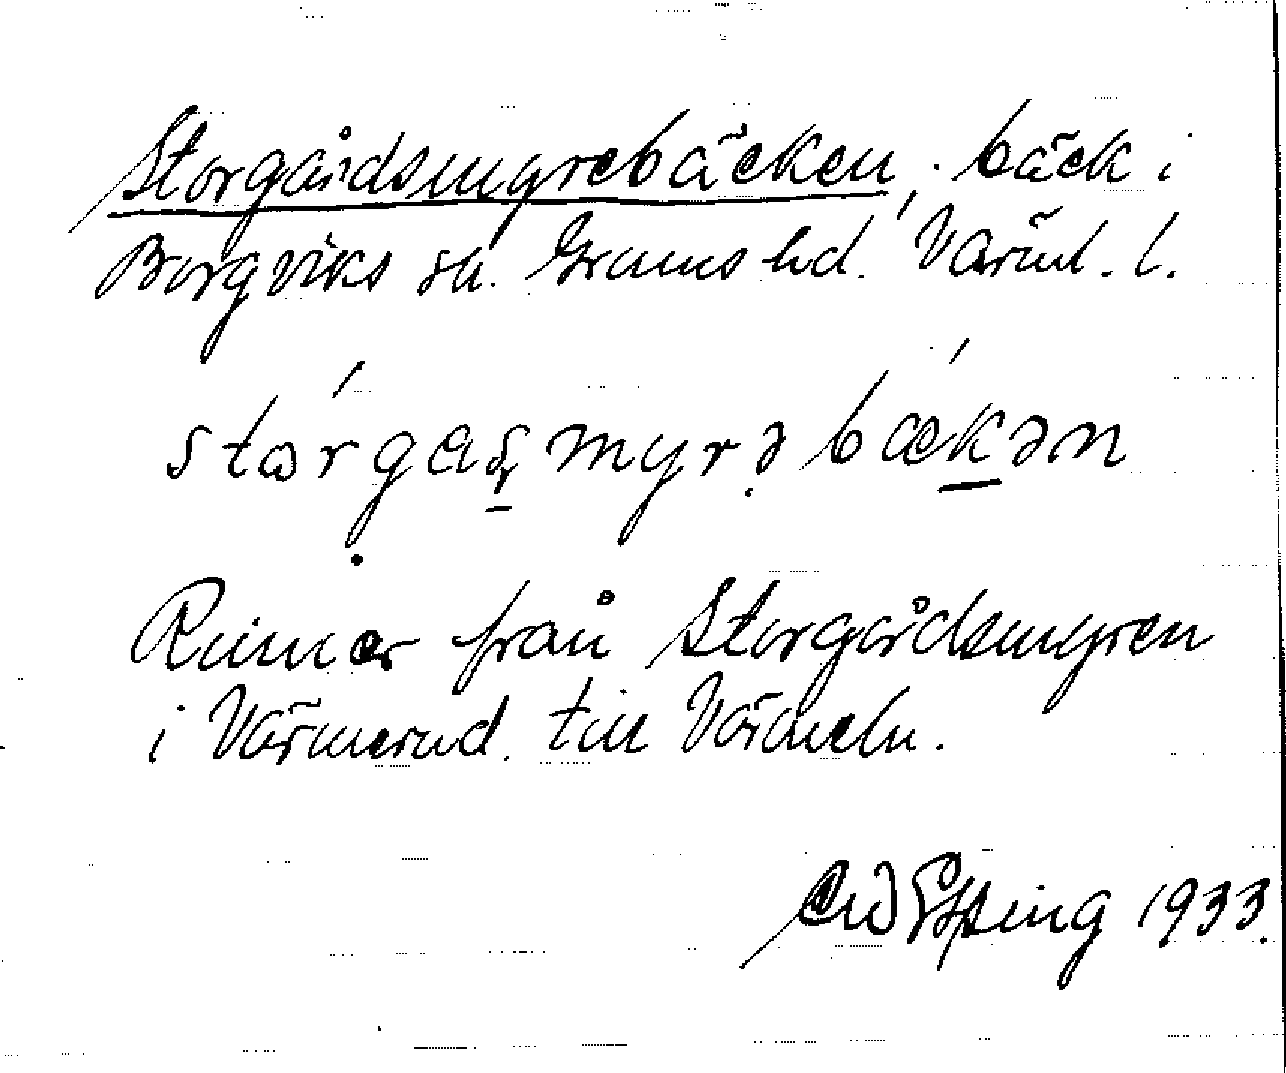 Storgårdsmyrebäcken, bäck i
Borgviks sn. Grums hd. Värml. l.
stårgaʂmyrəbækən
Rinner från Storgårdsmyren
i Värmerud till Värmeln.
1933.